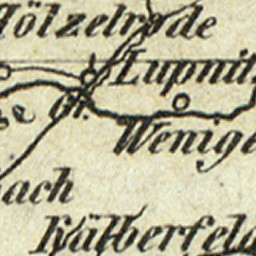 Tölzelrode
Lupnitz
Gr.
Wenige
bach
Kälberfeld